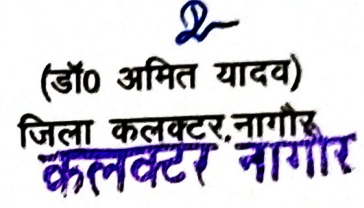 (डॉ0 अमित यादव)
जिला कलक्टर,नागौर
कलक्टर नागौर